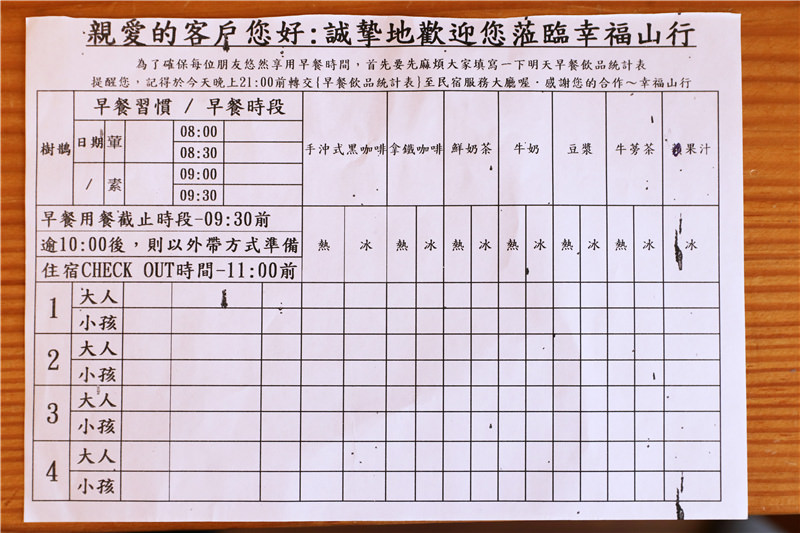 親愛的客戶您好:誠摯地歡迎您蒞臨幸福山行
為了確保每位朋友悠然享用早餐時間，首先要先麻煩大家填寫一下明天早餐飲品統計表
提醒您，記得於今天晚上21:00前轉交{早餐飲品統計表}至民宿服務大廳喔．感謝您的合作～幸福山行
早餐習慣 / 早餐時段
樹鵲 日期 葷 08:00 手沖式黑咖啡 拿鐵咖啡 鮮奶茶 牛奶 豆漿 牛蒡茶 蘋果汁
08:30
/ 素 09:00
09:30
早餐用餐截止時段-09:30前
逾10:00後，則以外帶方式準備 熱 冰 熱 冰 熱 冰 熱 冰 熱 冰 熱 冰 冰
住宿CHECK OUT時間-11:00前
1 大人
小孩
2 大人
小孩
3 大人
小孩
4 大人
小孩